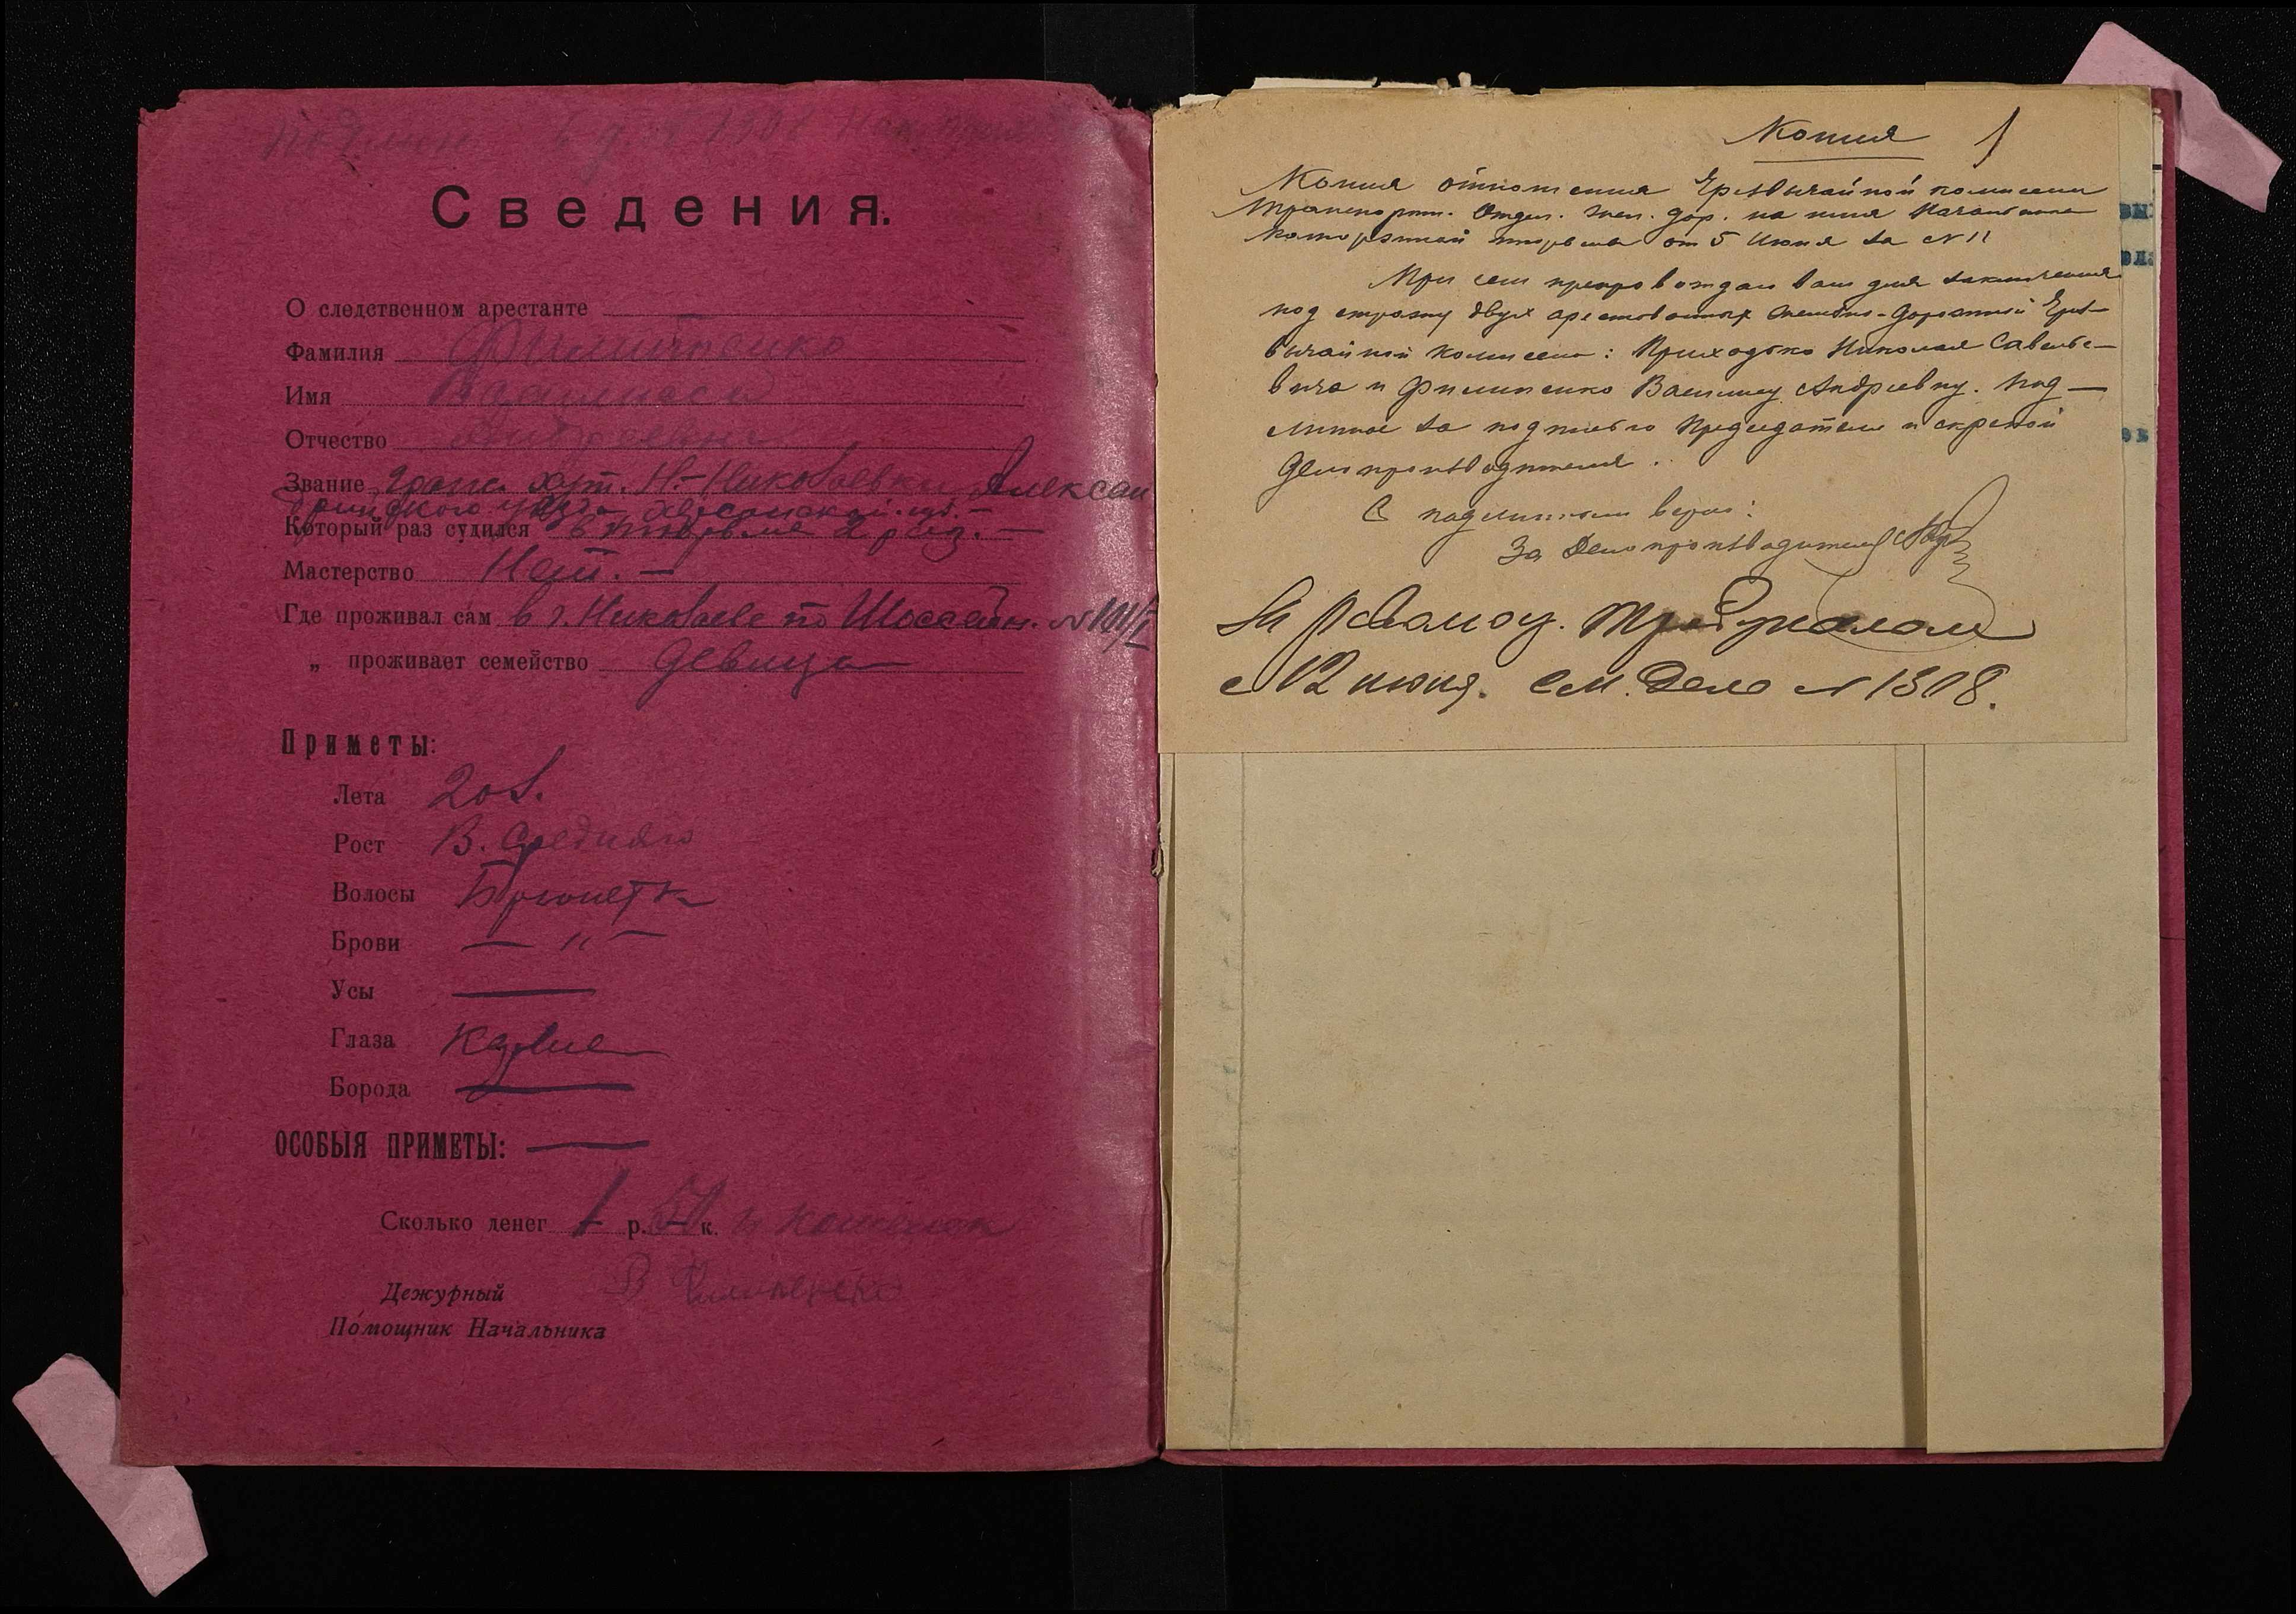 Сведения.
О следственном арестанте
Фамилия Филипенко
Имя
Отчество Андреевна
Звание граж. хут. Н.-Николаевки, Алексан
дрийского уезда Херсонской губ.-
Который раз судился в тюрьме 2 раз. -
Мастерство Нет. -
Где проживал сам в г. Николаеве по Шоссейн. № 101/
„ проживает семейство девица
Приметы:
Лета 20 л.
Рост В. Средняго
Волосы Брюнетк
Брови — " —
Усы —
Глаза Карие
Борода —
ОСОБЫЯ ПРИМЕТЫ: —
Сколько денег 1 р. 50 к. и кошелек
В Филипенко
Дежурный
Помощник Начальника
Копия 1
Копия отношения Чрезвычайной комиссии
Транспорт. Отдел. Жел. дор. на имя Начальника
каторжной тюрьмы от 5 Июня за № 11
При сем препровождаю вам для заключения
под стражу двух арестованных Железно-Дорожной Чрез-
вычайной комиссией: Приходько Николая Савелье-
вича и Филипенко Василису Андреевну. Под-
линное за подписью Председателя и скрепой
Делопроизводителя.
С подлинным верно:
За Делопроизводителя
За Революц. Трибуналом
с 12 июня. См. Дело № 1308.